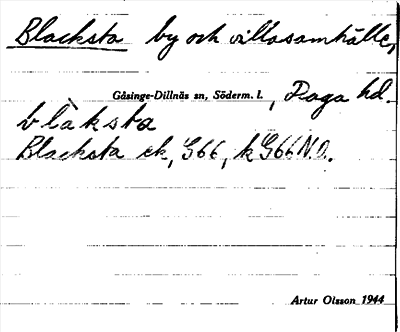 Blacksta by och villasamhälle,
Gåsinge-Dillnäs sn, Söderm. l., Daga hd.
blàksta
Blacksta ek, G66, k G66 N.O.
Artur Olsson 1944